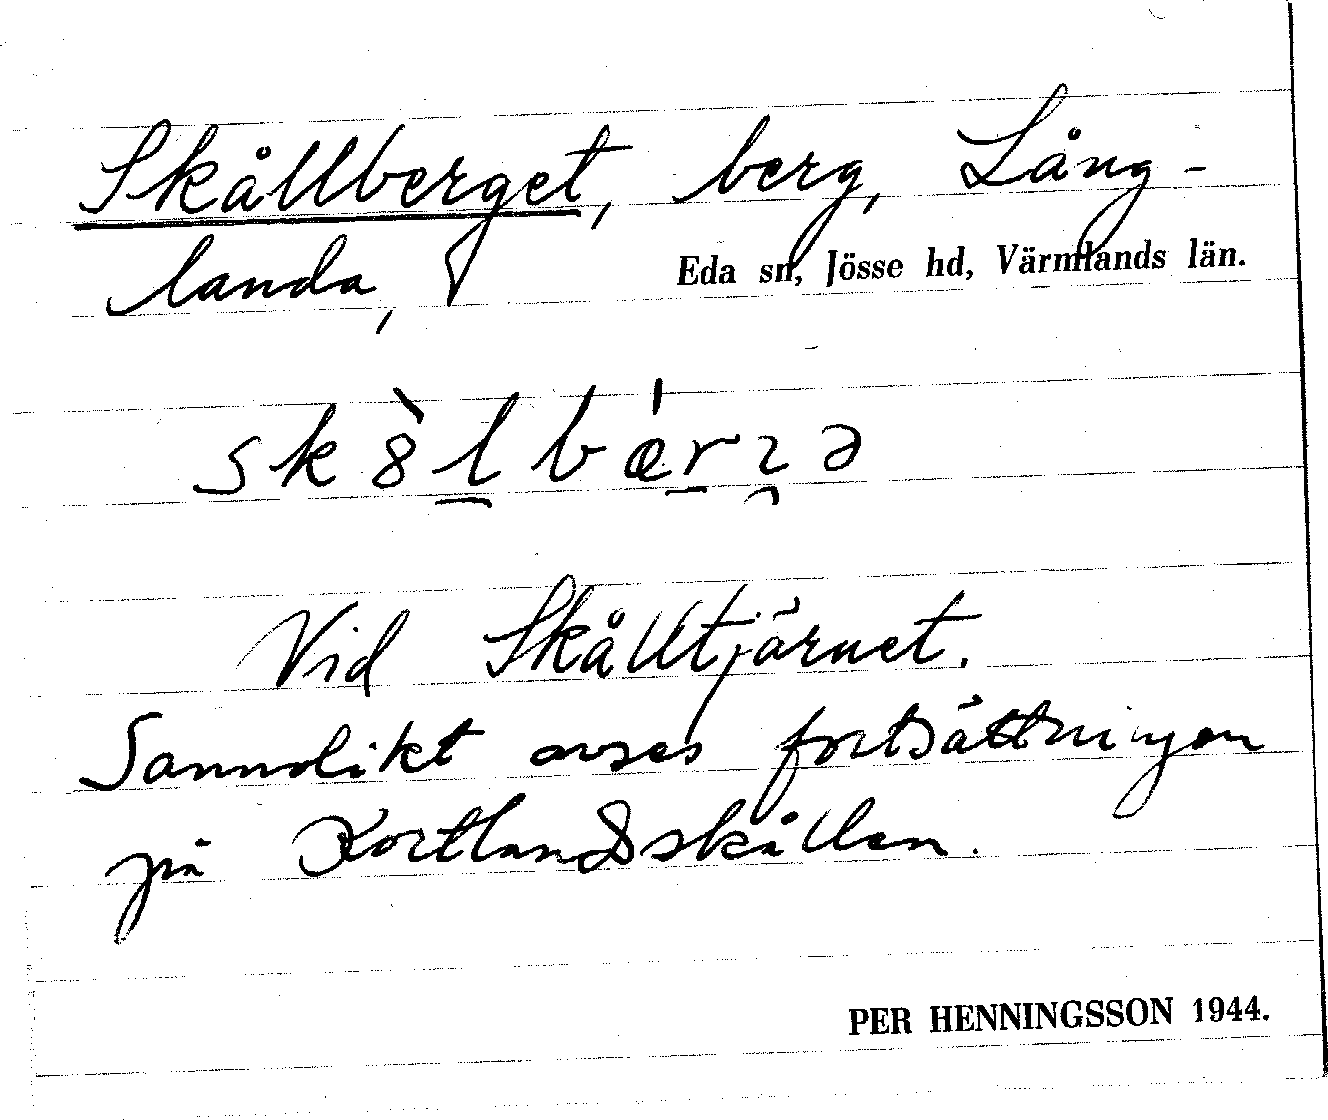 Skållberget, berg, Lång-
landa,
Eda sn, Jösse hd, Värmlands län.
Vid Skålltjärnet.
Sannolikt avses fortsättningen
på Kortlandsskållen.
PER HENNINGSSON 1944.